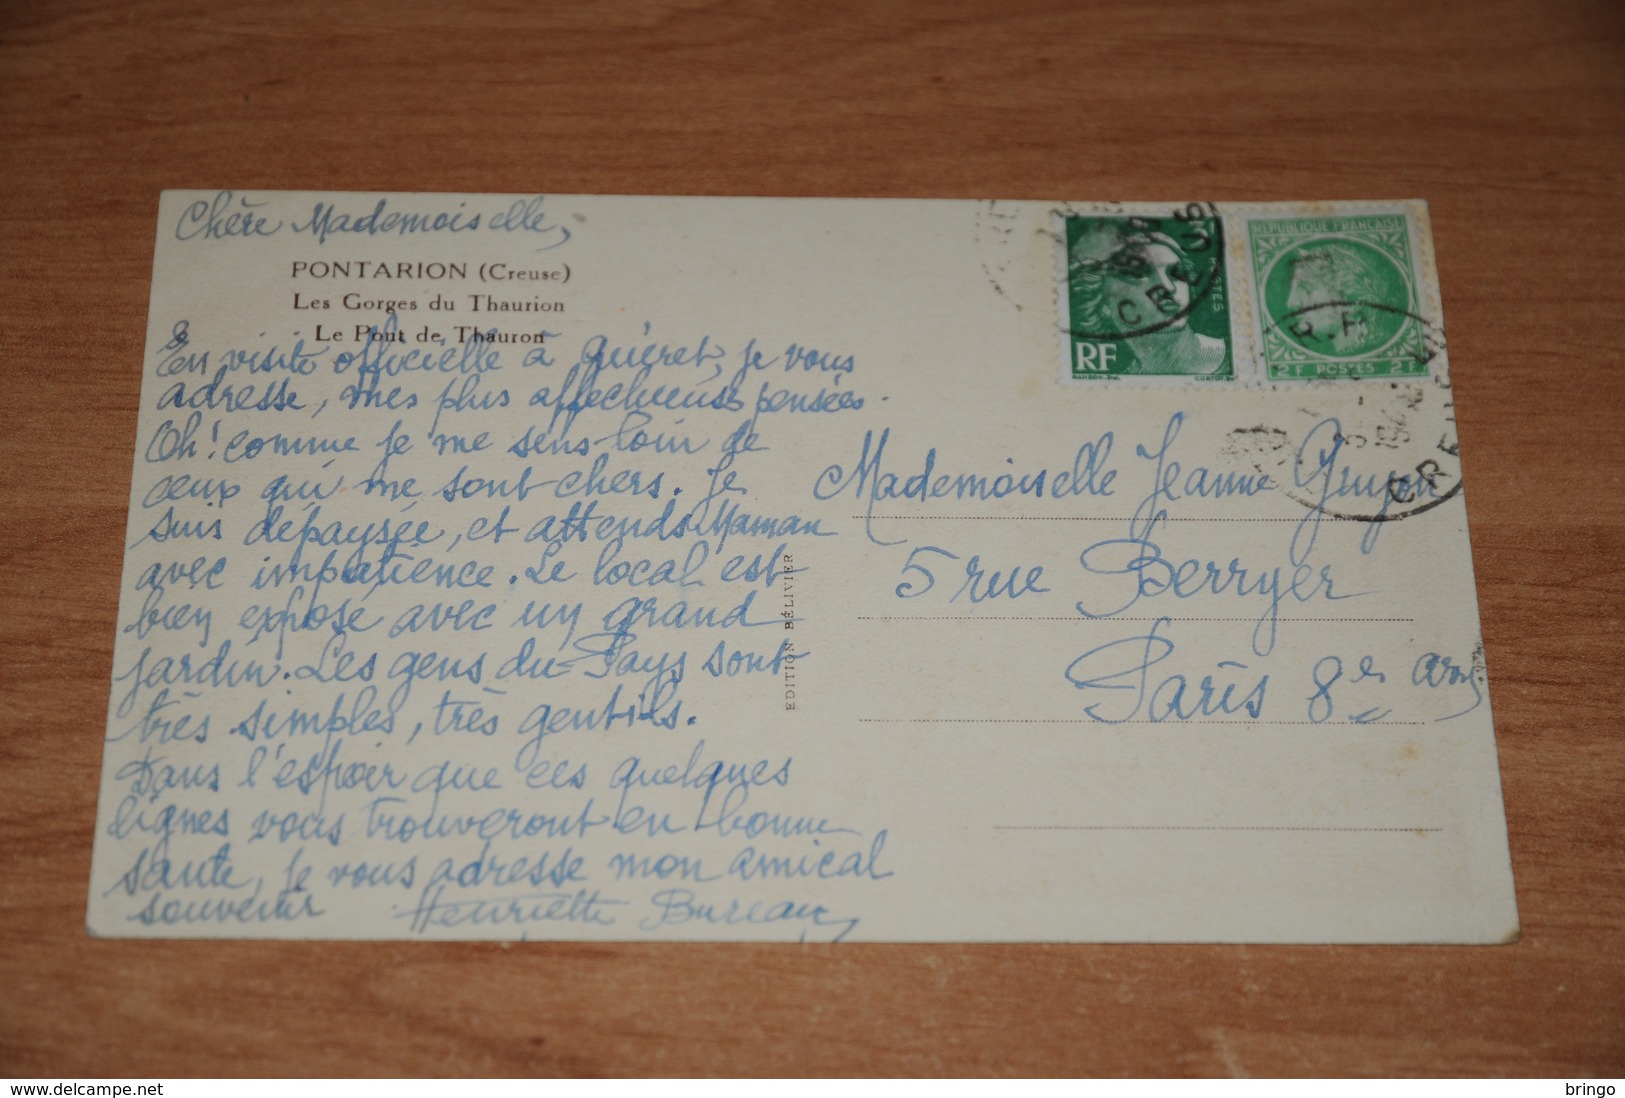 Chère Mademoiselle,
PONTARION (Creuse)
Les Gorges du Thaurion
Le Pont de Thauron
En visite officielle à Guéret, je vous
adresse, mes plus affectueuses pensées.
Oh! comme je me sens loin de
ceux qui me sont chers. Je
suis dépaysée, et attends Maman
avec impatience. Le local est
bien exposé avec un grand
jardin. Les gens du Pays sont
très simples, très gentils.
Dans l'espoir que ces quelques
lignes vous trouveront en bonne
santé, je vous adresse mon amical
souvenir Henriette Bureau
EDITION BÉLIVIER
Mademoiselle Jeanne Guyon
5 rue Berryer
Paris 8e arr
RF
POSTES
CREUSE
REPUBLIQUE FRANÇAISE
2F POSTES 2F
CREUSE
delcampe.net
bringo